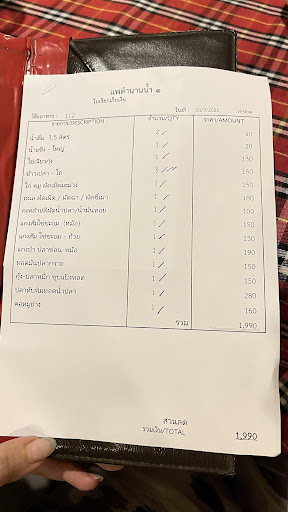 แพตำนานน้ำ ๑
ใบเรียกเก็บเงิน
โต๊ะอาหาร : 112 วันที่ : 31/5/2025
รายการ/DESCRIPTION จำนวน/QTY ราคา/AMOUNT
น้ำส้ม 1.5 ลิตร 2 50
น้ำแข็ง - ใหญ่ 1 20
ไข่เจียวกุ้ง 1 130
ข้าวเปล่า - โถ 3 150
1 150
ทะเล ผัดเผ็ด / ผัดฉ่า / ผัดขี้เมา 1 180
1 100
แกงส้มไข่ชะอม (หม้อ) 1 150
แกงส้ม ไข่ชะอม - ถ้วย 1 130
แกงป่า ปลาช่อน-หม้อ 1 190
ทอดมันปลากราย 1 150
กุ้ง-ปลาหมึก ชุบแป้งทอด 1 150
ปลาทับทิมทอดน้ำปลา 1 280
คอหมูย่าง 1 160
รวม 1,990
ส่วนลด
รวมเงิน/TOTAL 1,990